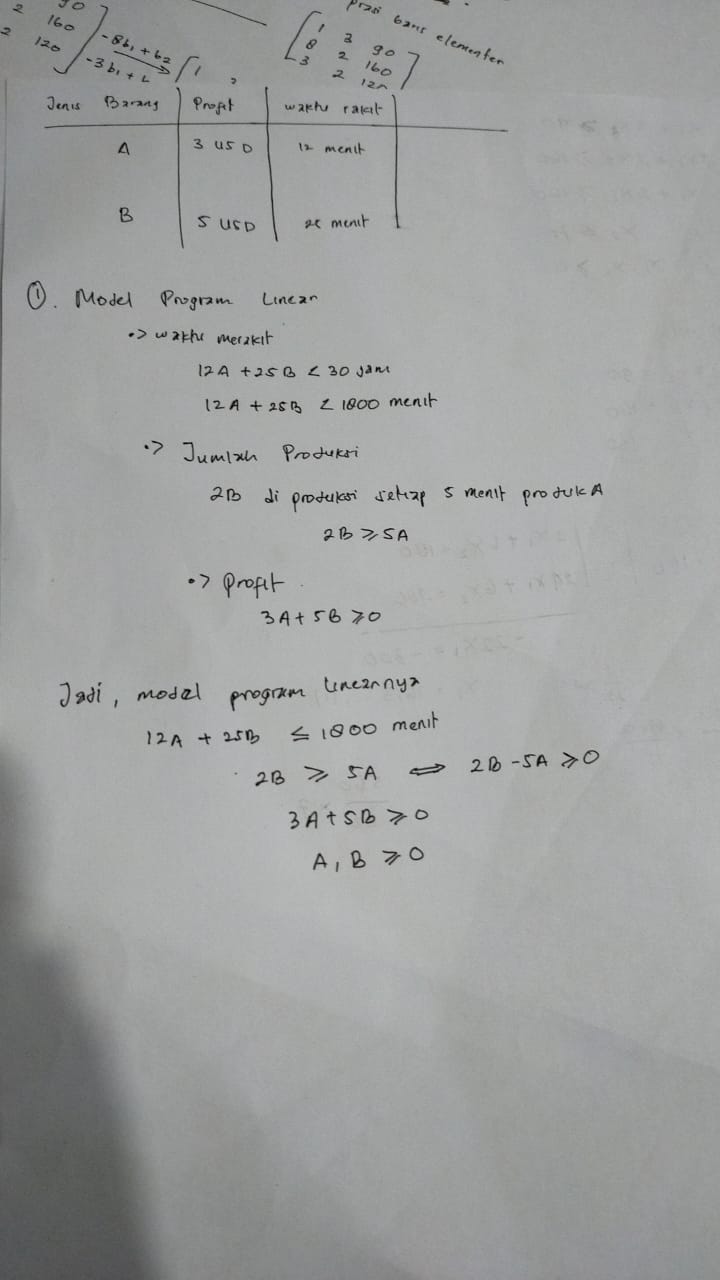 2 90
2 160
2 120
-8b₁ + b₂
-3b₁ + b
baris elementer
[1 3 90
8 2 160
3 2 120]
Jenis Barang | Profit | waktu rakit
A | 3 USD | 12 menit
B | 5 USD | 25 menit
①. Model Program Linear
•> waktu merakit
12A + 25B < 30 jam
12A + 25B ≤ 1800 menit
•> Jumlah Produksi
2B di produksi setiap 5 menit produk A
2B ≥ 5A
•> Profit
3A + 5B ≥ 0
Jadi, model program linearnya
12A + 25B ≤ 1800 menit
2B ≥ 5A ⇔ 2B - 5A ≥ 0
3A + 5B ≥ 0
A, B ≥ 0